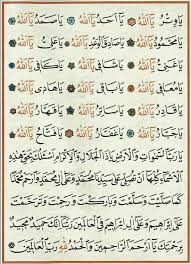 يَا وِتْرُ يَا اَللهُ يَا اَحَدُ يَا اَللهُ يَا صَمَدُ يَا اَللهُ
يَا مَحْمُودُ يَا اَللهُ يَا صَادِقَ الْوَعْدِ يَا اَللهُ يَا عَلِيُّ يَا اَللهُ
يَا غَنِيُّ يَا اَللهُ يَا شَافِي يَا اَللهُ يَا كَافِي يَا اَللهُ
يَا مُعَافِي يَا اَللهُ يَا بَاقِي يَا اَللهُ يَا هَادِي يَا اَللهُ
يَا قَادِرُ يَا اَللهُ يَا سَاتِرُ يَا اَللهُ يَا قَهَّارُ يَا اَللهُ
يَا جَبَّارُ يَا اَللهُ يَا غَفَّارُ يَا اَللهُ يَا فَتَّاحُ يَا اَللهُ
يَا رَبَّ السَّمٰوَاتِ وَالْاَرْضِ يَا ذَا الْجَلَالِ وَالْاِكْرَامِ اَسْئَلُكَ بِحَقِّ هٰذِهِ
الْاَسْمَاءِ كُلِّهَا اَنْ تُصَلِّيَ عَلٰى سَيِّدِنَا مُحَمَّدٍ وَعَلٰى اٰلِ مُحَمَّدٍ وَارْحَمْ مُحَمَّدًا
كَمَا صَلَّيْتَ وَسَلَّمْتَ وَبَارَكْتَ وَرَحِمْتَ وَتَرَحَّمْتَ
عَلٰى اِبْرَاهِيمَ وَعَلٰى اٰلِ اِبْرَاهِيمَ فِي الْعَالَمِينَ رَبَّنَا اِنَّكَ حَمِيدٌ مَجِيدٌ
بِرَحْمَتِكَ يَا اَرْحَمَ الرَّاحِمِينَ وَالْحَمْدُ لِلّٰهِ رَبِّ الْعَالَمِينَ